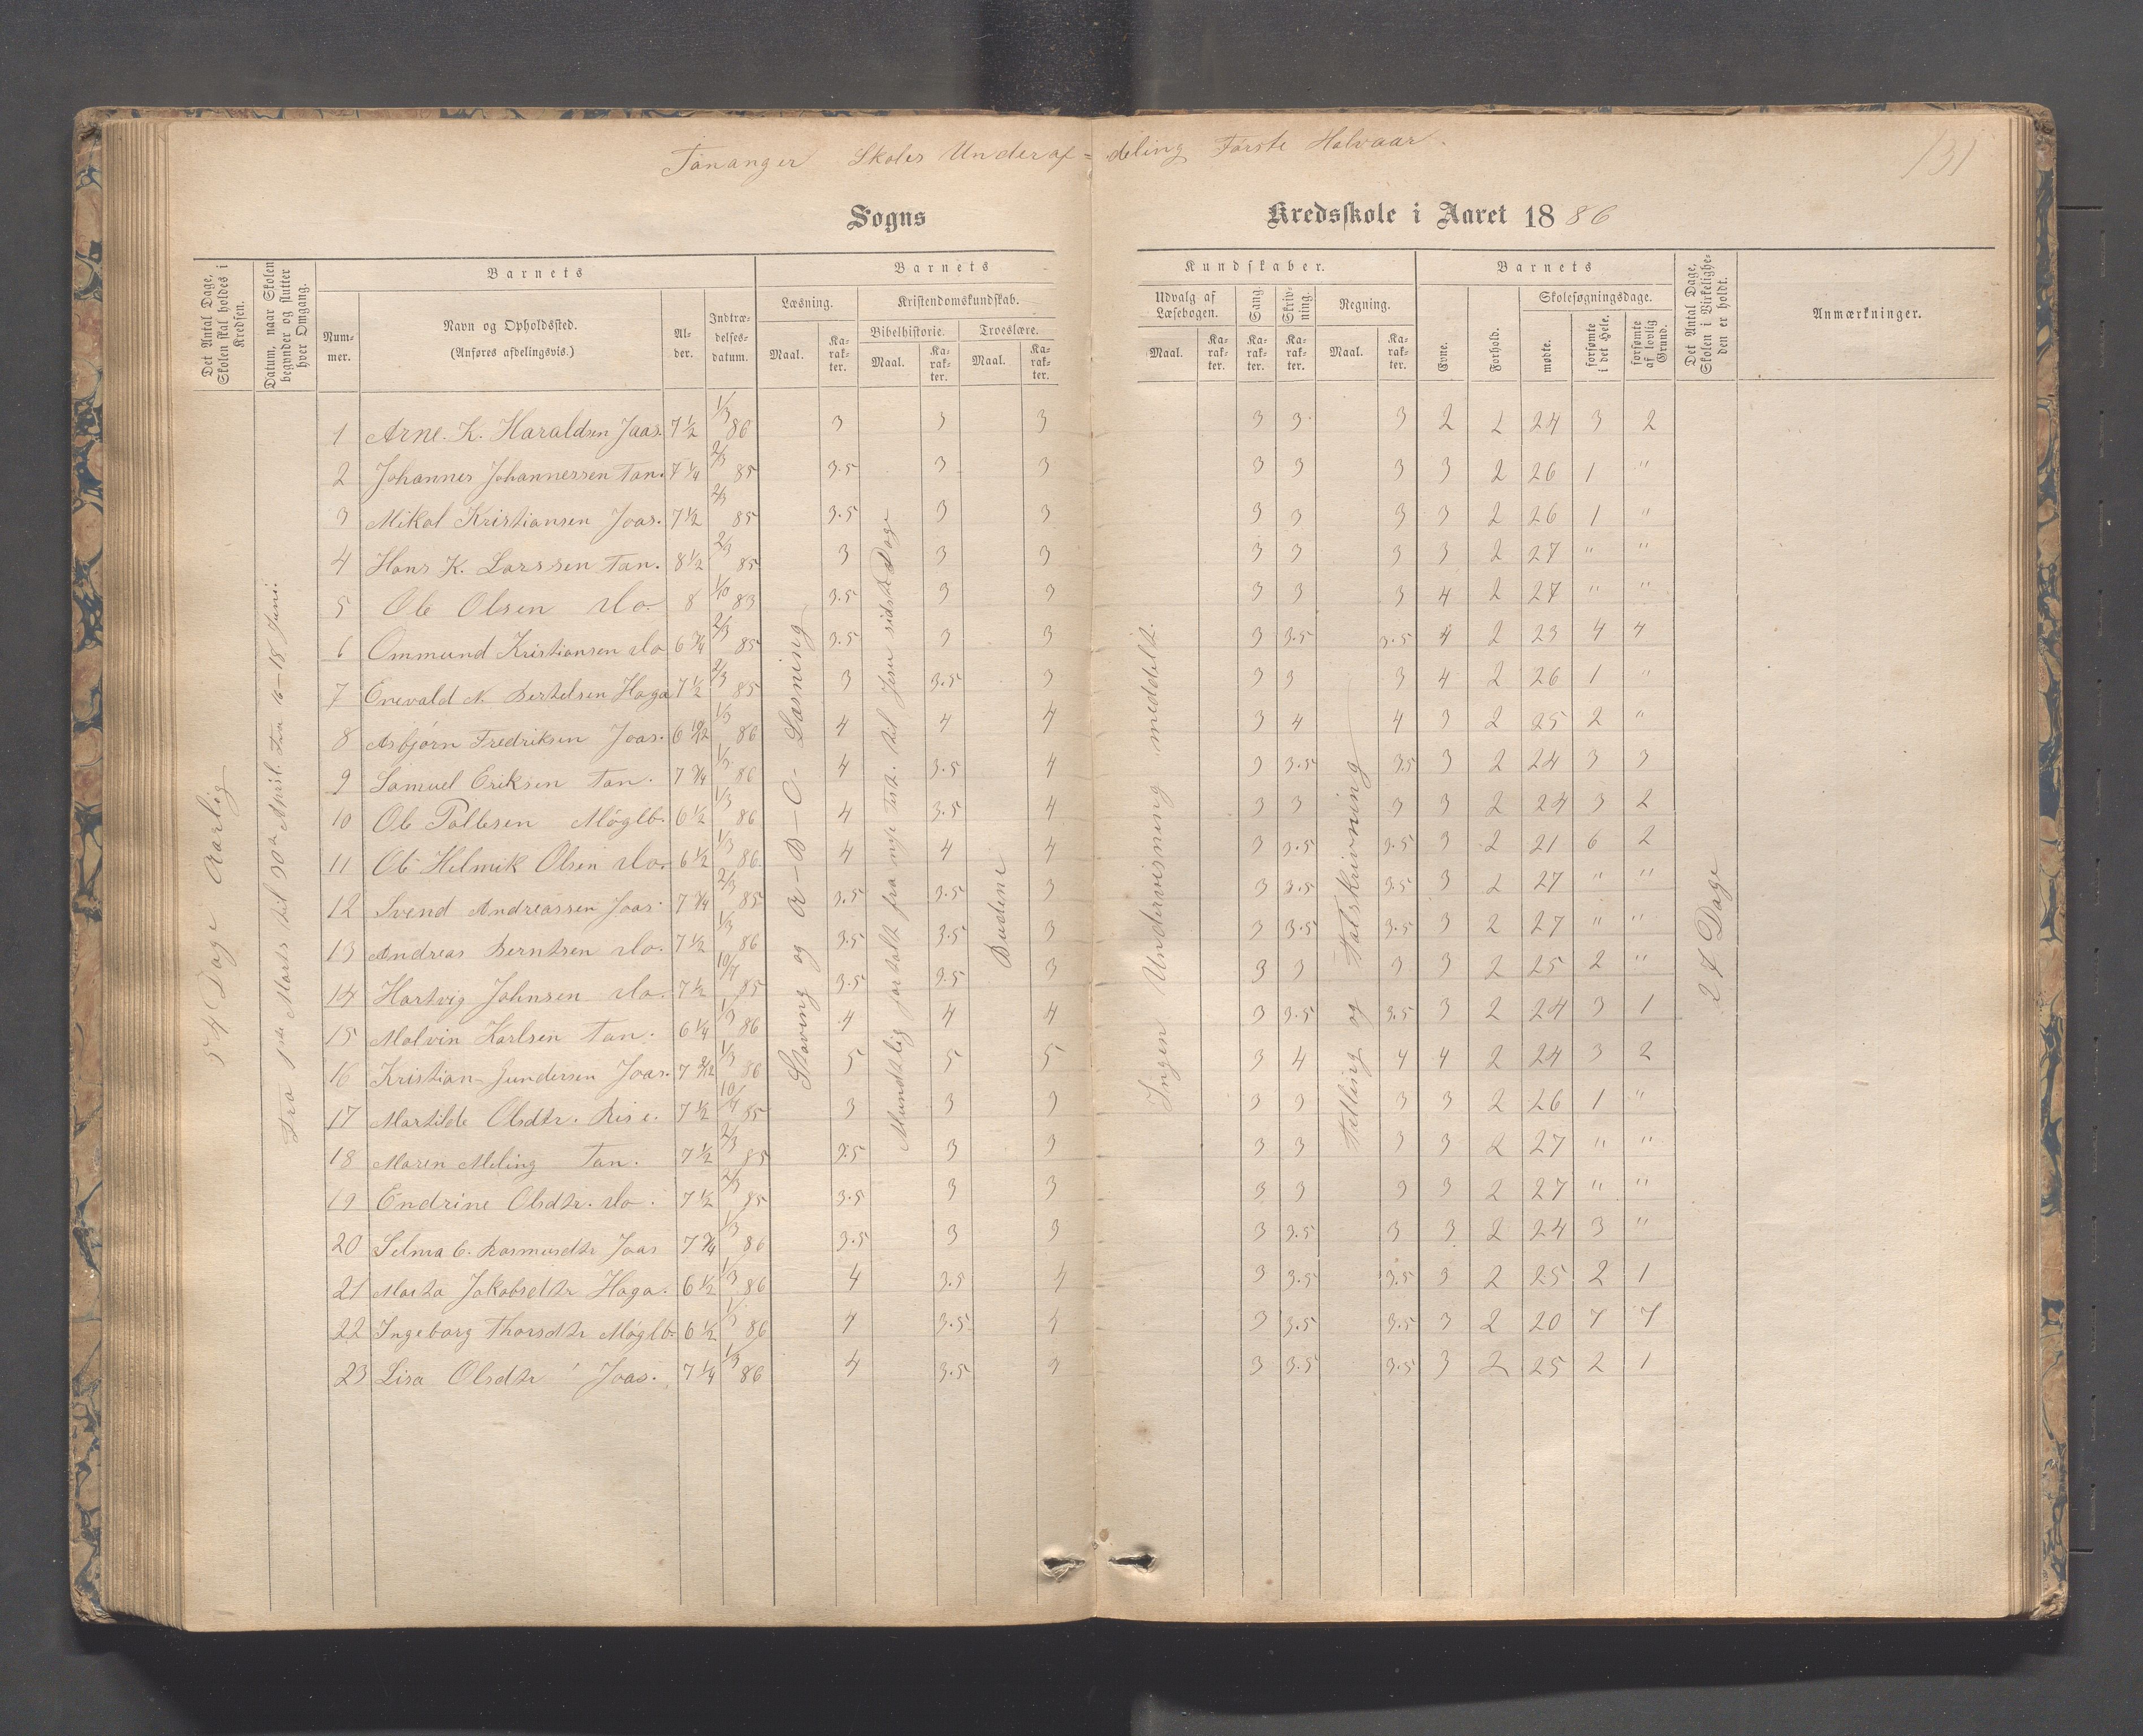 Tananger Skoles Underaf=deling Første Halvaar.
131
Sogns Kredsskole i Aaret 1886
Det Antal Dage, Skolen skal holdes i Kredsen.
Datum, naar Skolen begynder og slutter hver Omgang.
Barnets
Nummer.
Navn og Opholdssted.
(Anføres afdelingsvis.)
Alder.
Indtrædelsesdatum.
Barnets
Læsning.
Maal.
Karakter.
Kristendomskundskab.
Bibelhistorie.
Maal.
Karakter.
Troeslære.
Maal.
Karakter.
Kundskaber.
Udvalg af Læsebogen.
Maal.
Karakter.
Sang.
Karakter.
Skrivning.
Karakter.
Regning.
Maal.
Karakter.
Barnets
Evne.
Forhold.
Skolesøgningsdage.
mødte.
forsømte i det Hele.
forsømte af lovlig Grund.
Det Antal Dage, Skolen i Virkeligheden er holdt.
Anmærkninger.
54 Dage Aarlig
Fra 1ste Marts til 30te April. Fra 16-18 Juni.
Staving og A-B-C- Læsning
Mundtlig fortalt fra nye Test. til Jesu sidste Dage
Budene
Ingen Undervisning meddelt.
Tælling og Talskrivning
27 Dage
1 Arne. K. Haraldsen Joas. 7½ 1/3 86 3 3 3 3 3 3 2 2 24 3 2
2 Johannes Johannessen Tan. 7¼ 2/3 85 3.5 3 3 3 3 3 3 2 26 1 "
3 Mikal Kristiansen Joas. 7½ 2/3 85 3.5 3 3 3 3 3 3 2 26 1 "
4 Hans K. Larssen Tan. 8½ 2/3 85 3 3 3 3 3 3 3 2 27 " "
5 Ole Olsen do. 8 1/10 83 3.5 3 3 3 3 3 4 2 27 " "
6 Ommund Kristiansen do 6¾ 2/3 85 3.5 3 3 3 3.5 3.5 4 2 23 4 4
7 Enevald N. Bertelsen Haga 7½ 2/3 85 3 3.5 3 3 3 3 4 2 26 1 "
8 Asbjørn Fredriksen Joas. 6 10/12 1/3 86 4 4 4 3 4 4 3 2 25 2 "
9 Samuel Eriksen Tan. 7¾ 1/3 86 4 3.5 4 3 3.5 3.5 3 2 24 3 3
10 Ole Pallesen Møglb. 6½ 1/3 86 4 3.5 4 3 3 3 3 2 24 3 2
11 Ole Helmik Olsen do. 6½ 1/3 86 4 4 4 3 3.5 3.5 3 2 21 6 2
12 Svend Andreassen Joas. 7¾ 2/3 85 3.5 3.5 3 3 3.5 3.5 3 2 27 " "
13 Andreas Berntsen do. 7½ 1/3 86 3.5 3.5 3 3 3.5 3.5 3 2 27 " "
14 Hartvig Johnsen do. 7½ 10/7 85 3.5 3.5 3 3 3 3 3 2 25 2 "
15 Malvin Karlsen Tan. 6¼ 1/3 86 4 4 4 3 3.5 3.5 3 2 24 3 1
16 Kristian Gundersen Joas. 7 2/12 1/3 86 5 5 5 3 4 4 4 2 24 3 2
17 Martilde Olsdtr. Risi. 7½ 10/7 85 3 3 3 3 3 3 3 2 26 1 "
18 Maren Meling Tan. 7½ 2/3 85 3.5 3 3 3 3 3 3 2 27 " "
19 Endrine Olsdtr. do. 7½ 2/3 85 3.5 3 3 3 3 3 3 2 27 " "
20 Selma C. Rasmusdtr Joas 7¾ 1/3 86 3.5 3 3 3 3.5 3 3 2 24 3 "
21 Marta Jakobsdtr Haga. 6½ 1/3 86 4 3.5 4 3 3.5 3.5 3 2 25 2 1
22 Ingeborg Thorsdtr Møglb. 6½ 1/3 86 4 3.5 4 3 3.5 3.5 3 2 20 7 7
23 Lisa Olsdtr Joas. 7¼ 1/3 86 4 3.5 4 3 3.5 3.5 3 2 25 2 1